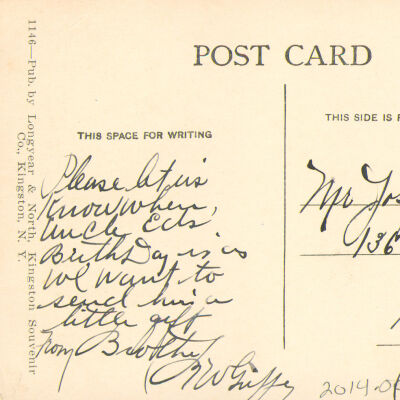 POST CARD
THIS SPACE FOR WRITING
THIS SIDE IS F
1146—Pub. by Longyear & North, Kingston Souvenir
Co., Kingston, N. Y.
Please let us
Know when,
Uncle Eds.
Birth Day is as
we want to
send him a
little gift
from Brother
Mr Jos
136
2014.0